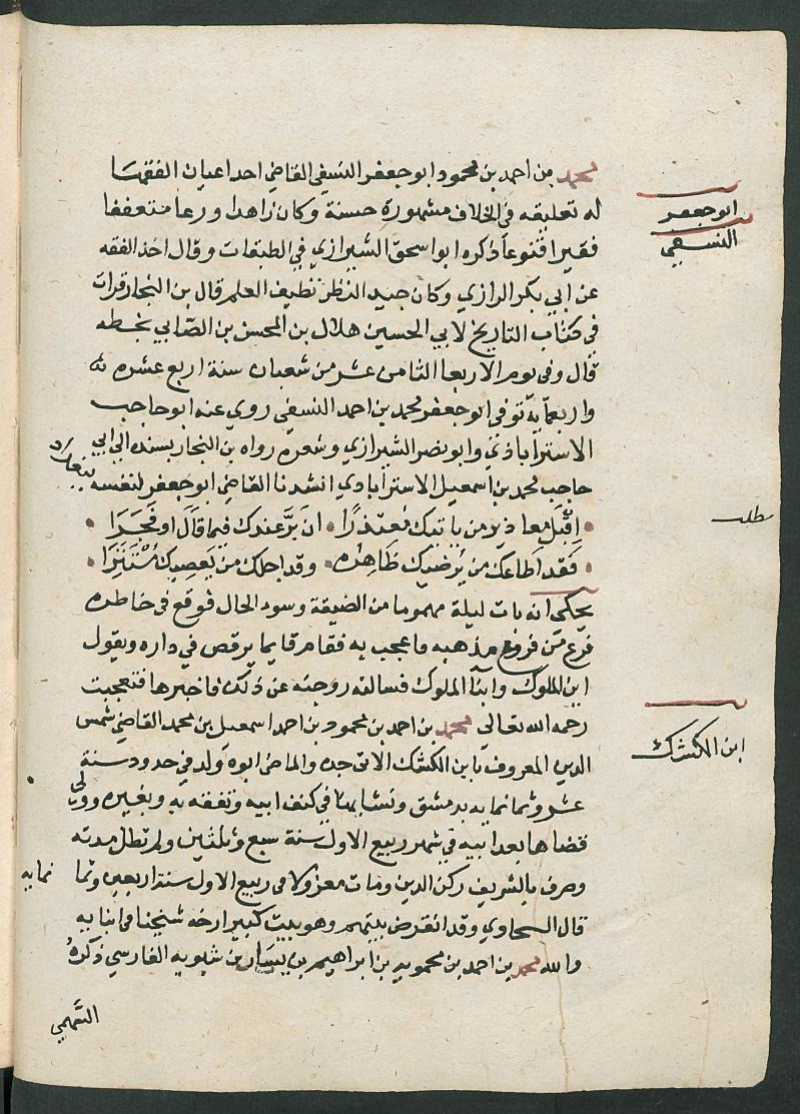 محمد بن احمد بن محمود ابو جعفر النسفي القاضي احد اعيان الفقها
ابو جعفر
النسفي
له تعليقه في الخلاف مشهورة حسنة وكان زاهدا ورعا متعففا
فقيرا قنوعا ذكره ابو اسحق الشيرازي في الطبقات وقال اخذ الفقه
عن ابي بكر الرازي وكان جيد النظر نظيف العلم قال بن النجار قرات
في كتاب التاريخ لابي الحسين هلال بن المحسن بن الصابي بخطه
قال وفي يوم الاربعا الثامن عشر من شعبان سنة اربع عشره
واربعمايه توفي ابو جعفر محمد بن احمد النسفي روي عنه ابو حاجب
الاستراباذي وابو نصر الشيرازي وشعره رواه بن النجار بسنده الي ابي
حاجب محمد بن اسمعيل الاسترابادي انشدنا القاضي ابو جعفر لنفسه ببغداد
اقبل معاذير من ياتيك معتذرا • ان بر عندك فيما قال او فجرا •
مطلب
فقد اطاعك من يرضيك ظاهره • وقد اجلك من يعصيك مستترا •
يحكي انه بات ليلة مهموما من الضيقة وسود الحال فوقع في خاطره
فرع من فروع مذهبه فاعجب به فقام قايما يرقص في داره ويقول
اين الملوك وابنا الملوك فسالته زوجته عن ذلك فاخبرها فتعجبت
رحمه الله تعالي محمد بن احمد بن محمود بن احمد اسمعيل بن محمد القاضي شمس
ابن الكشك
الدين المعروف بابن الكشك الاتي جده والماضي ابوه ولد في حدود سنة
عشر وثمانمايه بدمشق ونشا بها في كنف ابيه وتفقه به وبغيره وولي
قضاها بعد ابيه في شهر ربيع الاول سنة سبع وثلثين ولم تطل مدته
وصرف بالشريف ركن الدين ومات معزولا في ربيع الاول سنة اربعين وثما نمايه
قال السخاوي وقد انقرض بيتهم وهو بيت كبير ارخه شيخنا في انبايه
والله محمد بن احمد بن محمويه بن ابراهيم بن شيويه الفارسي ذكره
السهمي